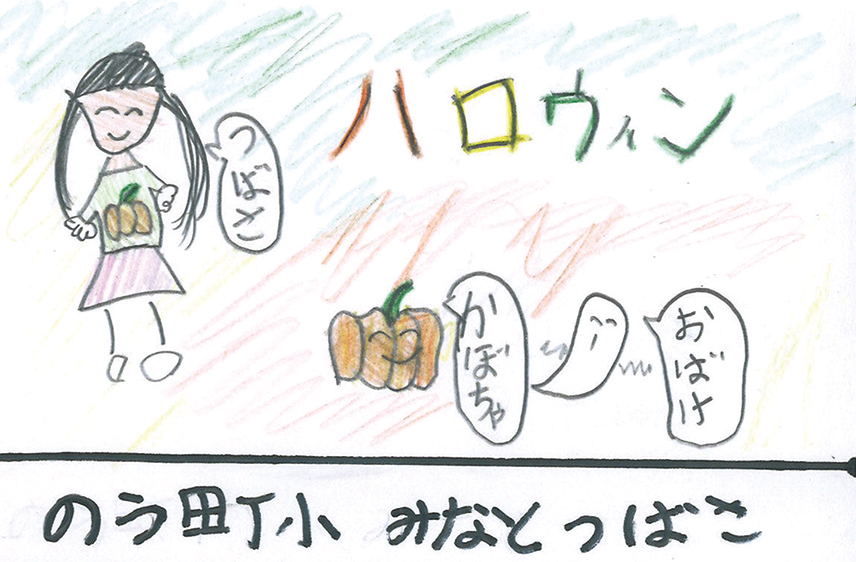 ハロウィン
つばさ
かぼちゃ
おばけ
のう町小 みなとつばさ